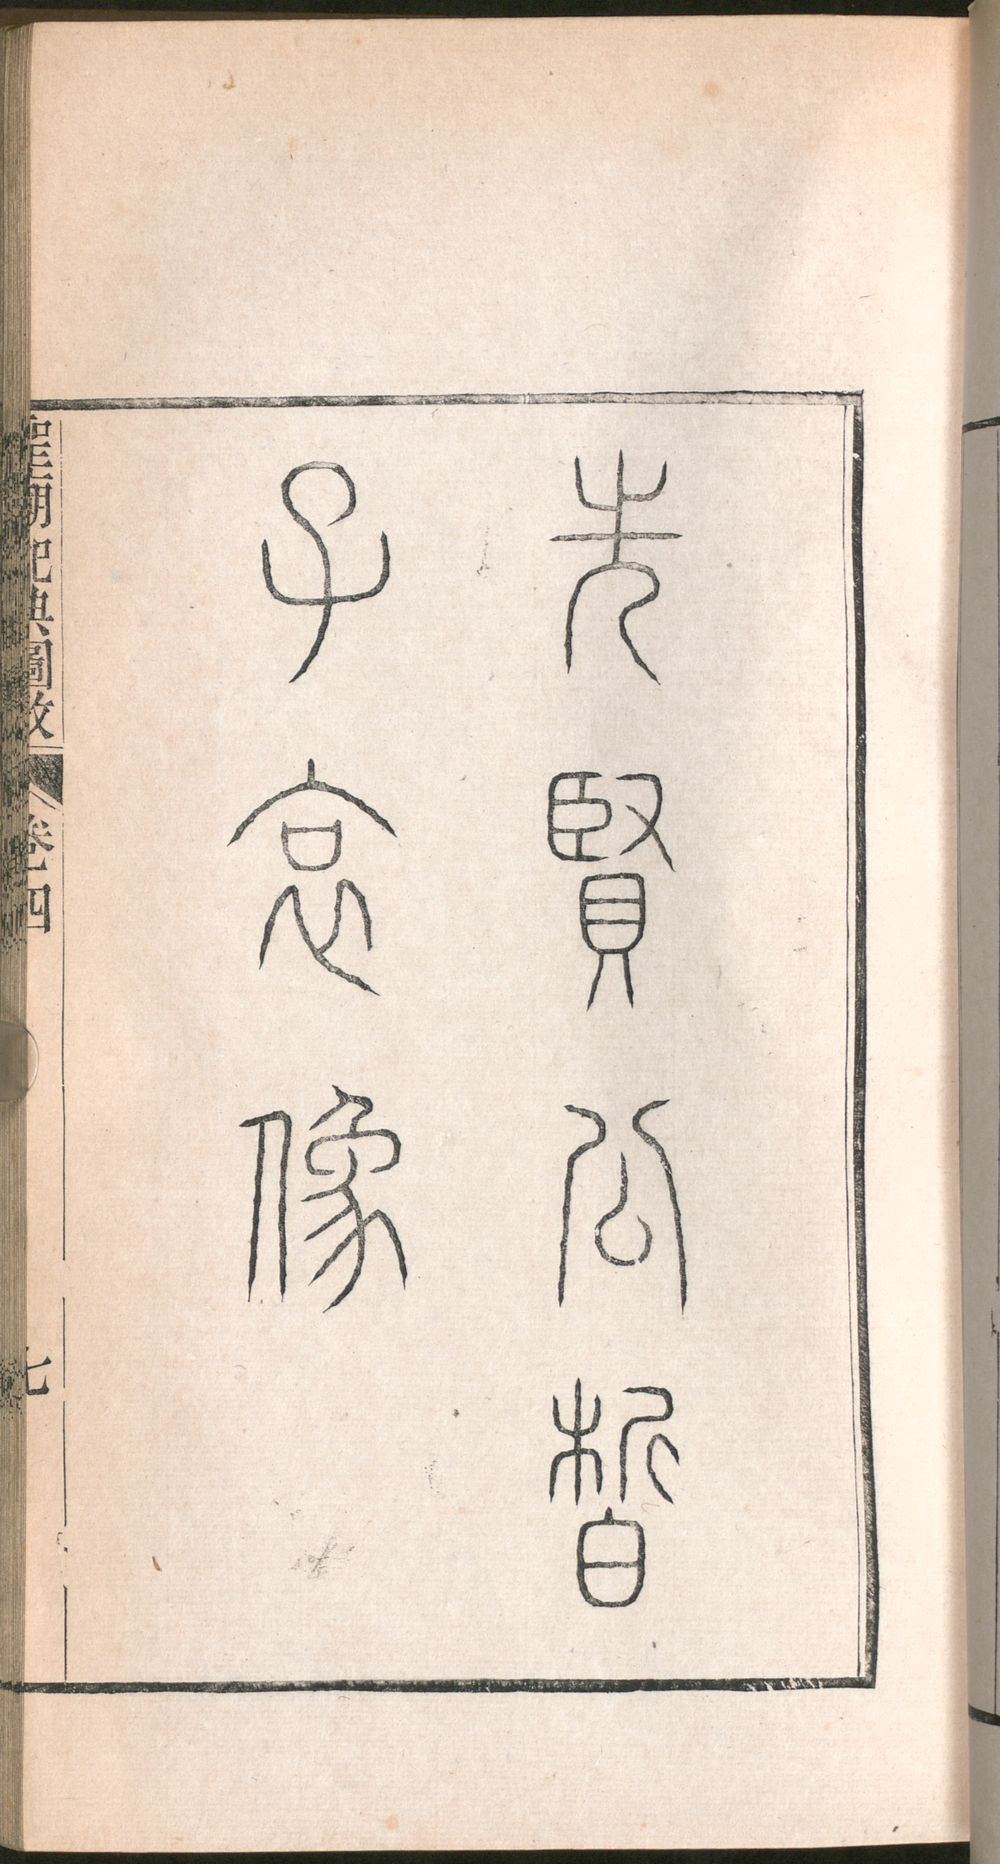 先賢公皙
子哀像
聖朝祀典圖攷
卷四
七